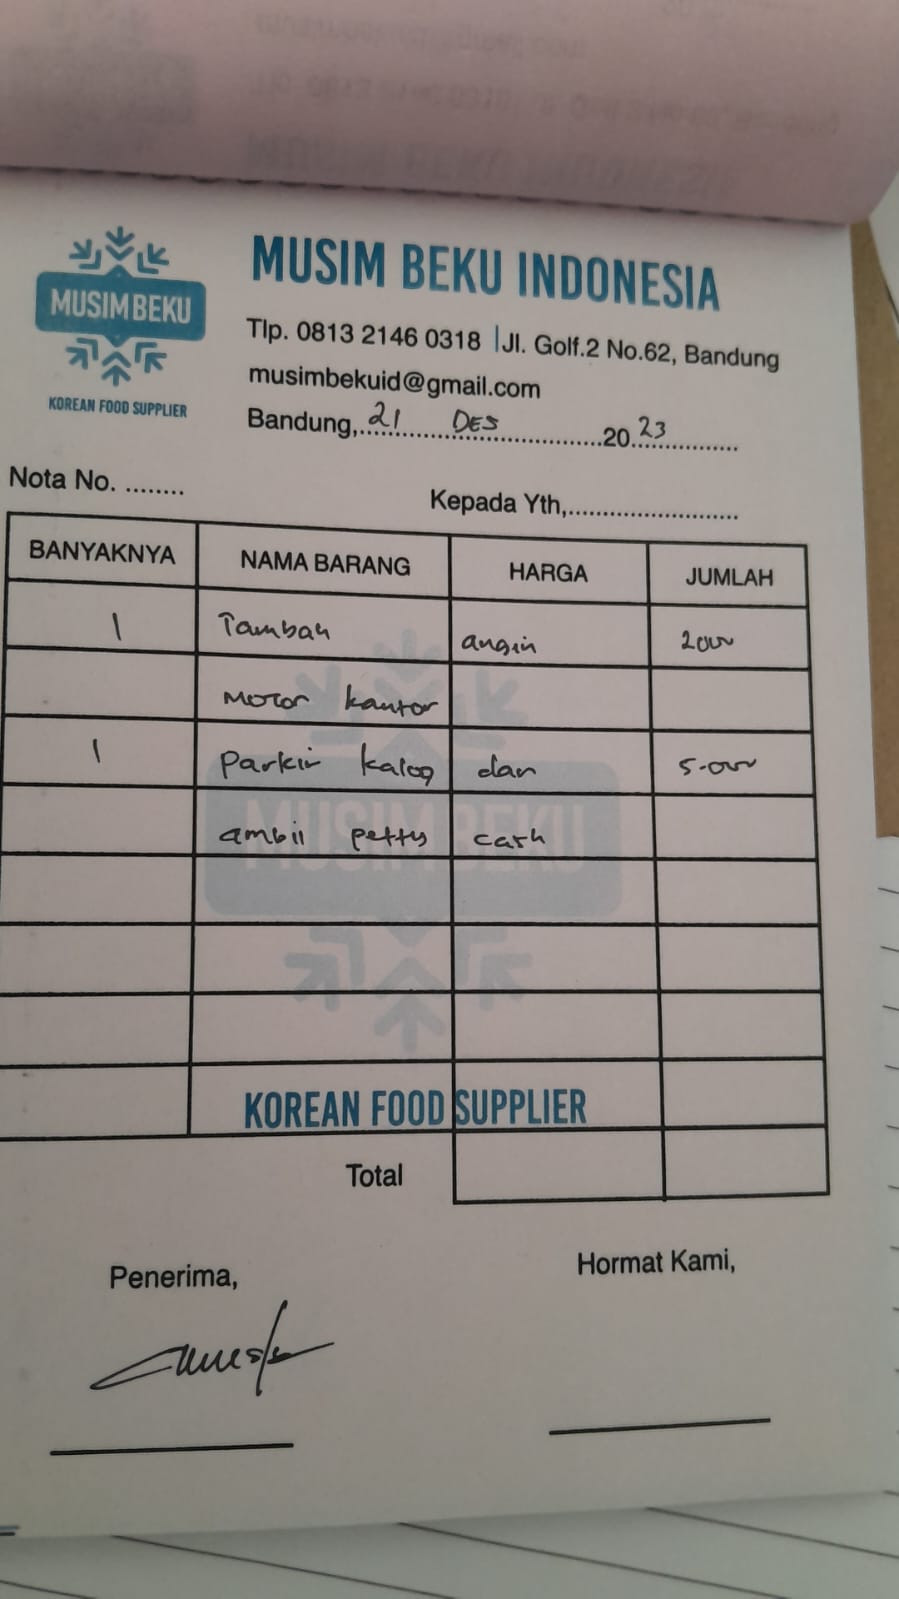 MUSIM BEKU
KOREAN FOOD SUPPLIER
MUSIM BEKU INDONESIA
Tlp. 0813 2146 0318 | Jl. Golf.2 No.62, Bandung
musimbekuid@gmail.com
Bandung, 21 DES 20 23
Nota No. ........
Kepada Yth,........................
BANYAKNYA NAMA BARANG HARGA JUMLAH
1 Tambah angin 2000
Motor kantor
1 Parkir kalog dan 5.000
ambil petty cash
MUSIM BEKU
KOREAN FOOD SUPPLIER
Total
Penerima, Hormat Kami,